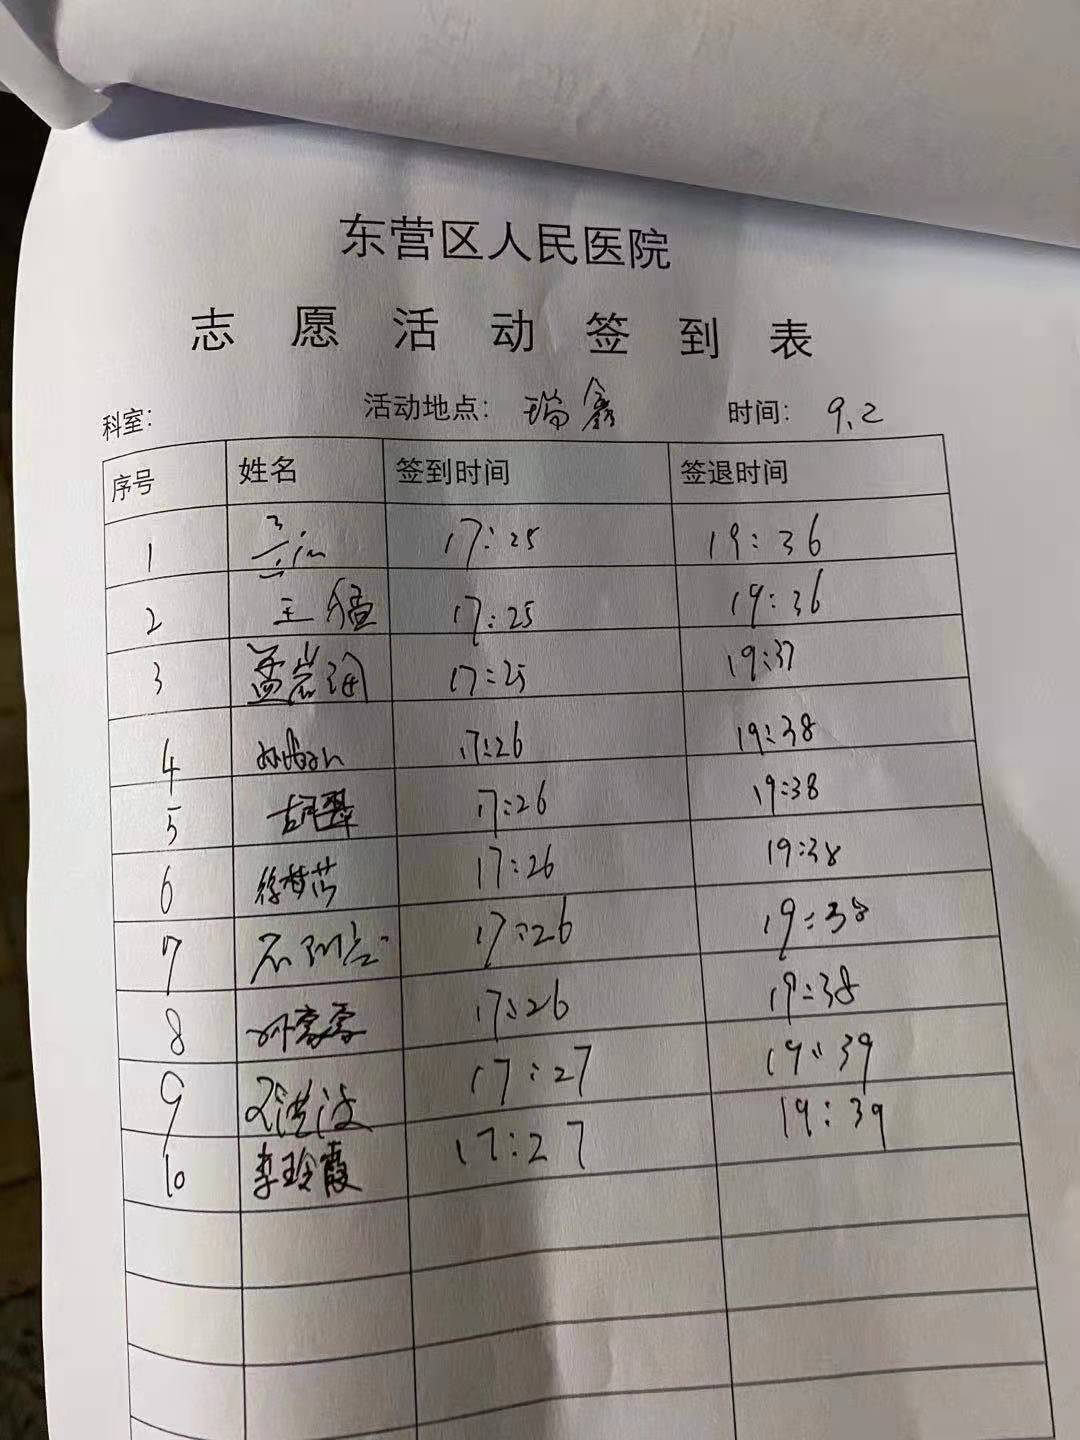 东营区人民医院
志愿活动签到表
科室： 活动地点： 瑞鑫 时间： 9.2
序号 姓名 签到时间 签退时间
1 17:25 19:36
2 王猛 17:25 19:36
3 孟岩 17:25 19:37
4 17:26 19:38
5 胡翠 17:26 19:38
6 徐梦莎 17:26 19:38
7 17:26 19:38
8 17:26 19:38
9 邓洪波 17:27 19:39
10 李玲霞 17:27 19:39